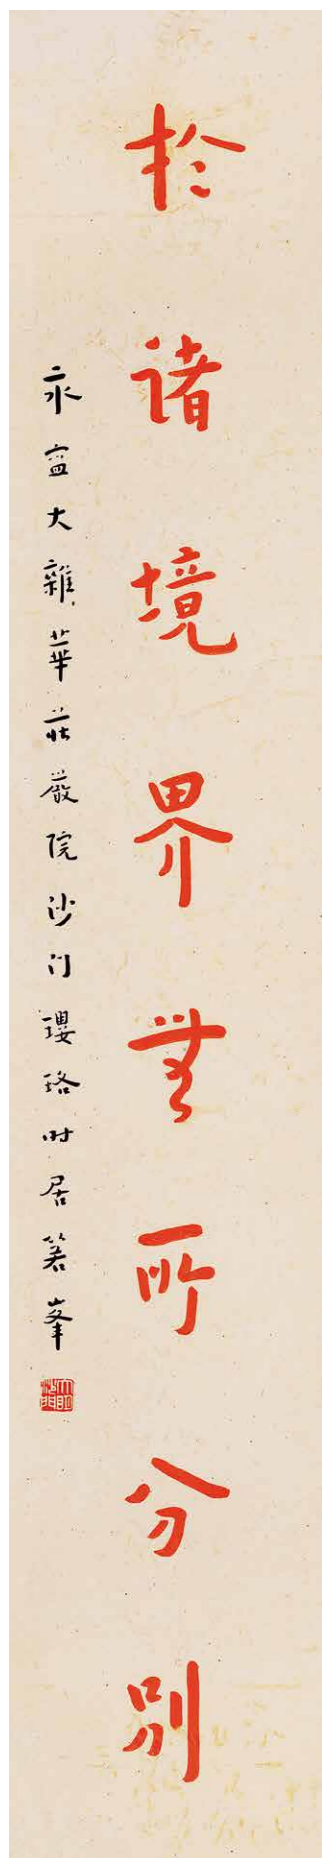 於諸境界無所分別
永寧大雜華莊嚴院沙门瓔珞时居箬峯